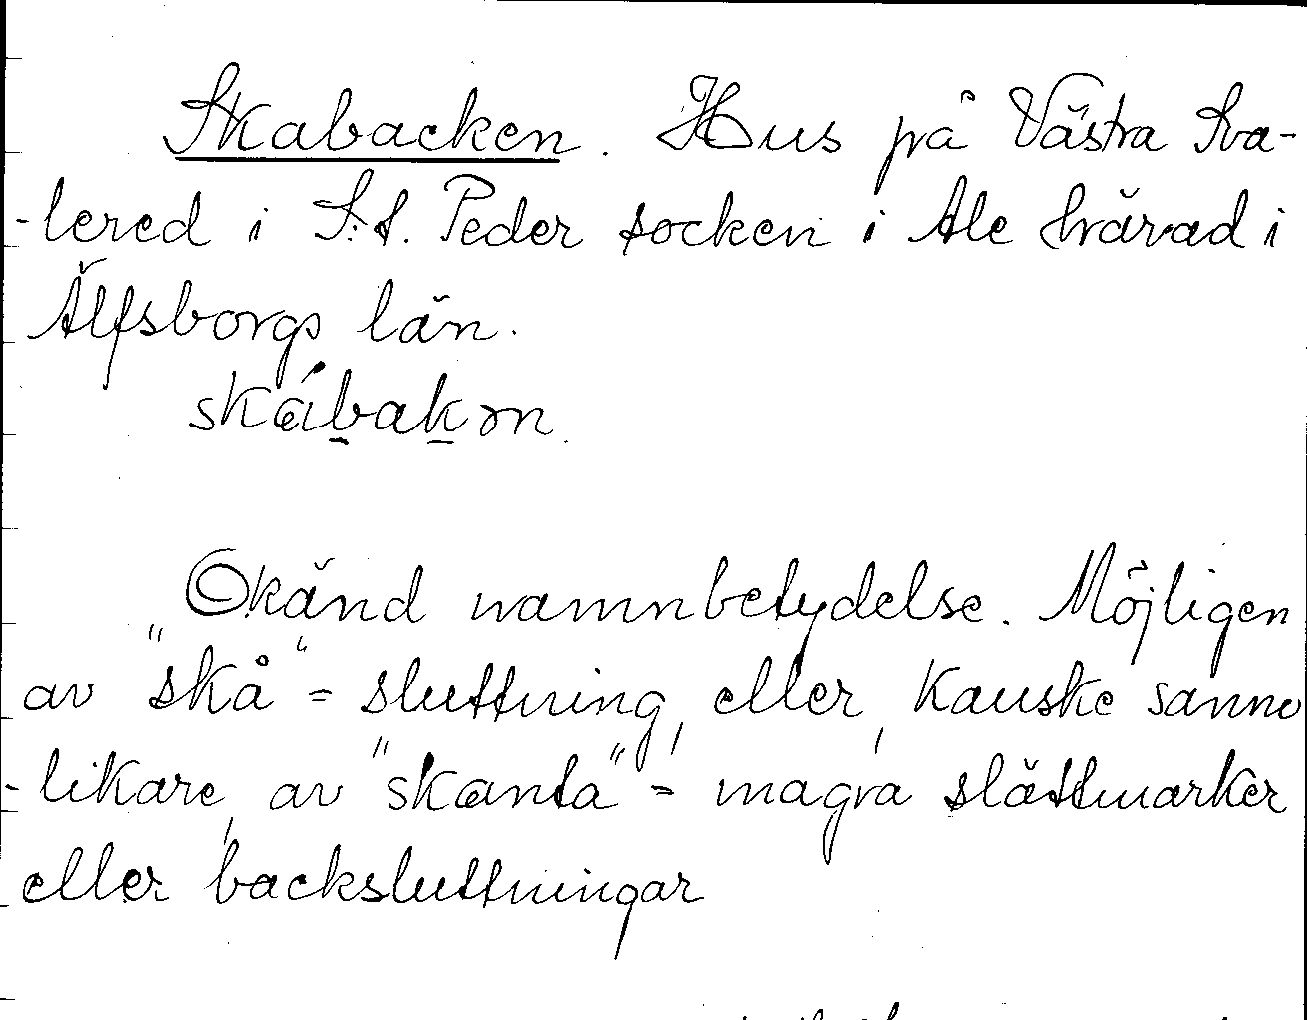 Skabacken. Hus på Västra Sva-
-lered i S:t. Peder socken i Ale härad i
Älfsborgs län.
skábakɷn.
Okänd namnbetydelse. Möjligen
av "skå" = sluttning, eller, kanske sanno
-likare, av "skanta" = magra slåttmarker
eller backsluttningar